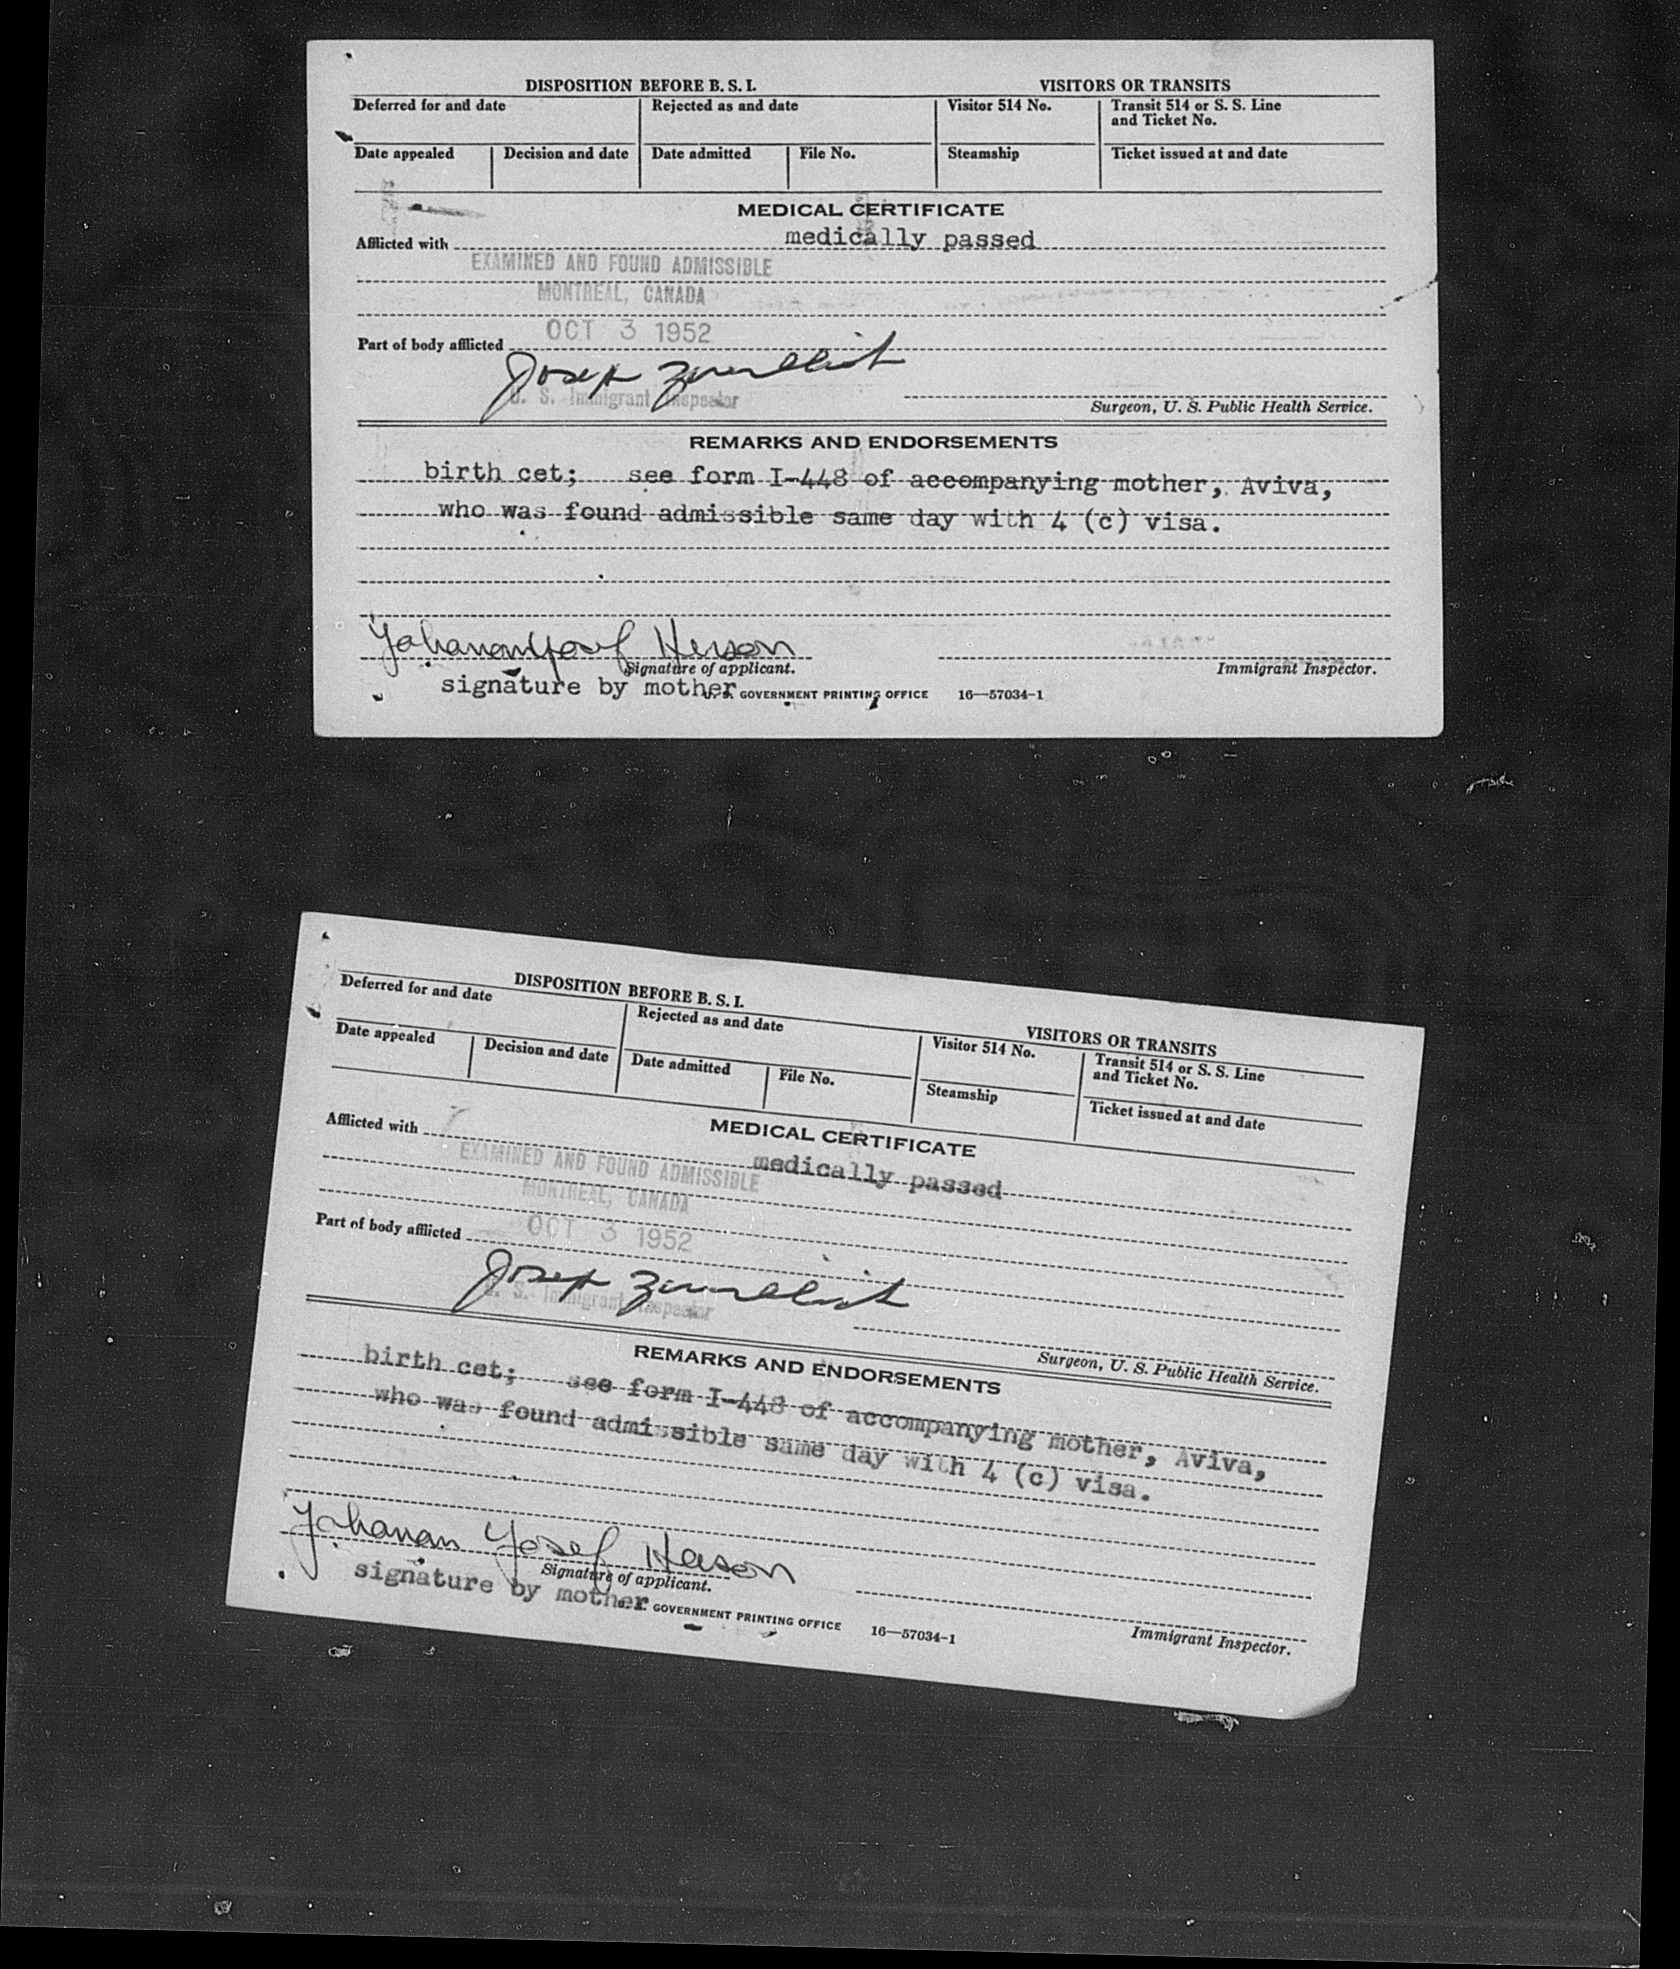 DISPOSITION BEFORE B. S. I. VISITORS OR TRANSITS
Deferred for and date Rejected as and date Visitor 514 No. Transit 514 or S. S. Line
and Ticket No.
Date appealed Decision and date Date admitted File No. Steamship Ticket issued at and date
MEDICAL CERTIFICATE
Afflicted with medically passed
EXAMINED AND FOUND ADMISSIBLE
MONTREAL, CANADA
OCT 3 1952
Part of body afflicted
Joseph
U. S. Immigrant Inspector
Surgeon, U. S. Public Health Service.
REMARKS AND ENDORSEMENTS
birth cet; see form I-448 of accompanying mother, Aviva,
who was found admissible same day with 4 (c) visa.
Yohanan Yosef Herson
Signature of applicant. Immigrant Inspector.
signature by mother U. S. GOVERNMENT PRINTING OFFICE 16—57034-1
DISPOSITION BEFORE B. S. I. VISITORS OR TRANSITS
Deferred for and date Rejected as and date Visitor 514 No. Transit 514 or S. S. Line
and Ticket No.
Date appealed Decision and date Date admitted File No. Steamship Ticket issued at and date
MEDICAL CERTIFICATE
Afflicted with medically passed
EXAMINED AND FOUND ADMISSIBLE
MONTREAL, CANADA
OCT 3 1952
Part of body afflicted
Joseph
U. S. Immigrant Inspector
Surgeon, U. S. Public Health Service.
REMARKS AND ENDORSEMENTS
birth cet; see form I-448 of accompanying mother, Aviva,
who was found admissible same day with 4 (c) visa.
Yohanan Yosef Herson
Signature of applicant.
signature by mother U. S. GOVERNMENT PRINTING OFFICE 16—57034-1 Immigrant Inspector.